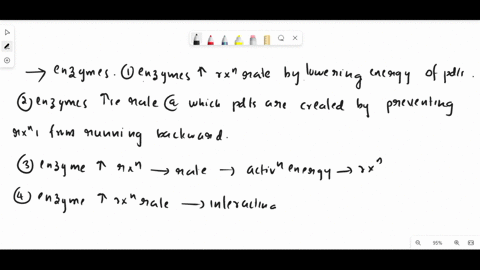 → enzymes. ① enzymes ↑ rxⁿ rate by lowering energy of pdts.
② enzymes ↑se rate @ which pdts are created by preventing
rxⁿs from running backward.
③ enzyme ↑ rxⁿ → rate → activⁿ energy → rxⁿ
④ enzyme ↑ rxⁿ rate → interactina
95%